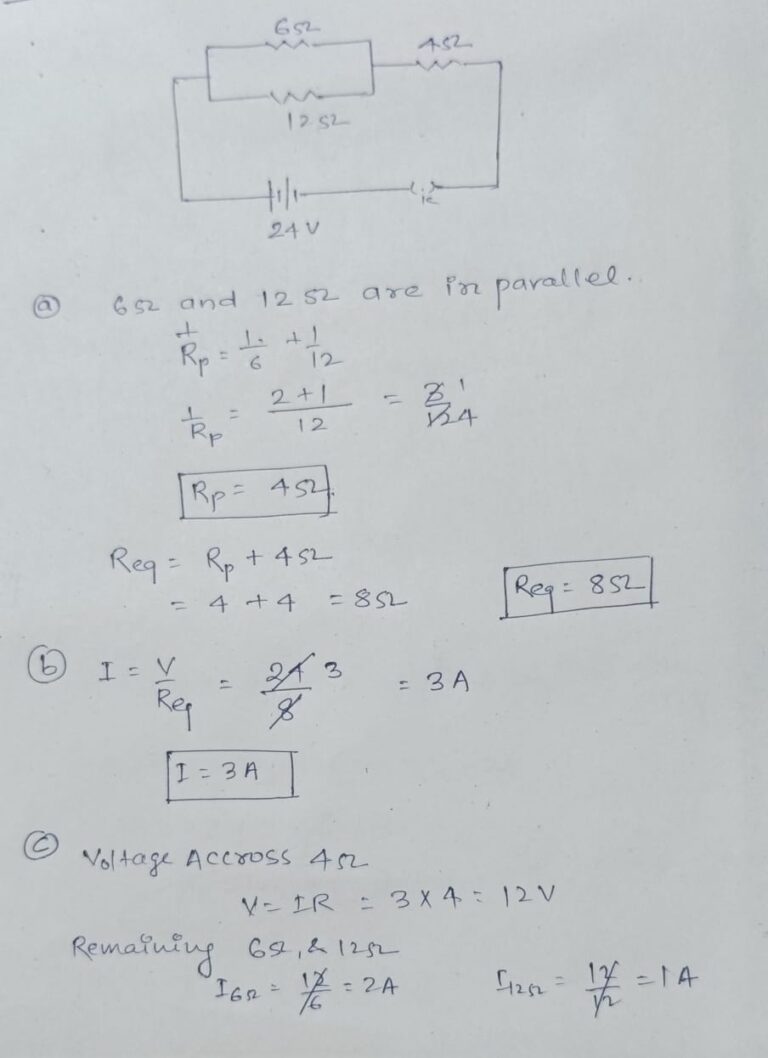 6Ω
4Ω
12Ω
24 V
k
ⓐ 6Ω and 12Ω are in parallel.
1/Rp = 1/6 + 1/12
1/Rp = 2+1/12 = 3̸ 1/1̸2̸ 4
Rp = 4Ω.
Req = Rp + 4Ω
= 4 + 4 = 8Ω
Req = 8Ω
ⓑ I = V/Req = 2̸4̸ 3/8̸ = 3A
I = 3A
ⓒ Voltage Accross 4Ω
V = IR = 3 x 4 = 12V
Remaining 6Ω, & 12Ω
I6Ω = 1̸2̸/6̸ = 2A I12Ω = 1̸2̸/1̸2̸ = 1A